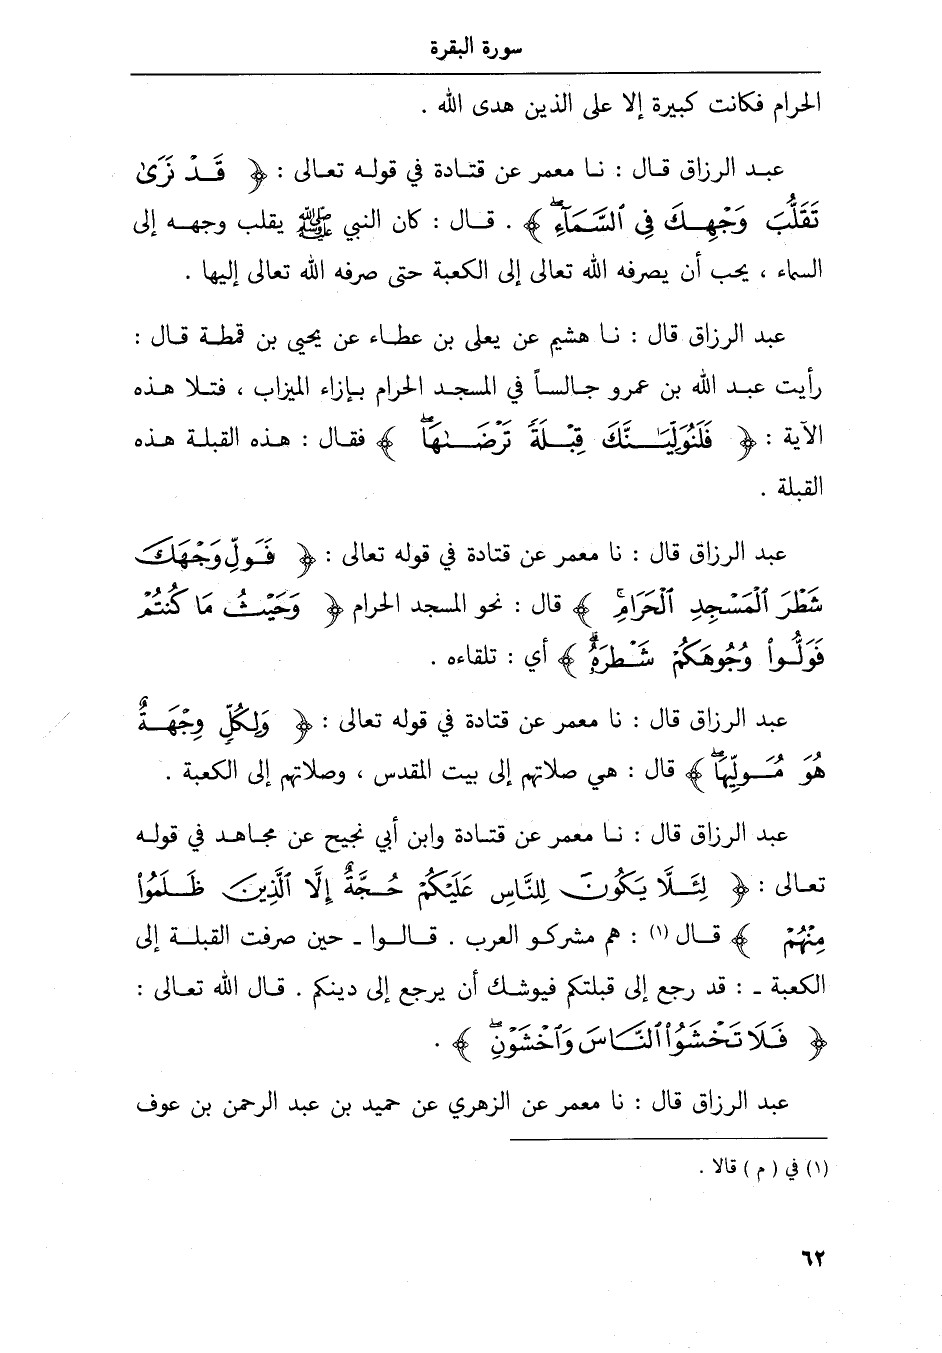 سورة البقرة
الحرام فكانت كبيرة إلا على الذين هدى الله .
عبد الرزاق قال : نا معمر عن قتادة في قوله تعالى : ﴿ قَدْ نَرَىٰ
تَقَلُّبَ وَجْهِكَ فِى ٱلسَّمَآءِ ۖ ﴾ . قال : كان النبي ﷺ يقلب وجهه إلى
السماء ، يحب أن يصرفه الله تعالى إلى الكعبة حتى صرفه الله تعالى إليها .
عبد الرزاق قال : نا هشيم عن يعلى بن عطاء عن يحيى بن قمطة قال :
رأيت عبد الله بن عمرو جالساً في المسجد الحرام بإزاء الميزاب ، فتلا هذه
الآية : ﴿ فَلَنُوَلِّيَنَّكَ قِبْلَةً تَرْضَىٰهَا ۖ ﴾ فقال : هذه القبلة هذه
القبلة .
عبد الرزاق قال : نا معمر عن قتادة في قوله تعالى : ﴿ فَوَلِّ وَجْهَكَ
شَطْرَ ٱلْمَسْجِدِ ٱلْحَرَامِ ۚ ﴾ قال : نحو المسجد الحرام ﴿ وَحَيْثُ مَا كُنتُمْ
فَوَلُّوا۟ وُجُوهَكُمْ شَطْرَهُۥ ۗ ﴾ أي : تلقاءه .
عبد الرزاق قال : نا معمر عن قتادة في قوله تعالى : ﴿ وَلِكُلٍّ وِجْهَةٌ
هُوَ مُوَلِّيهَا ۖ ﴾ قال : هي صلاتهم إلى بيت المقدس ، وصلاتهم إلى الكعبة .
عبد الرزاق قال : نا معمر عن قتادة وابن أبي نجيح عن مجاهد في قوله
تعالى : ﴿ لِئَلَّا يَكُونَ لِلنَّاسِ عَلَيْكُمْ حُجَّةٌ إِلَّا ٱلَّذِينَ ظَلَمُوا۟
مِنْهُمْ ﴾ قال (١) : هم مشركو العرب . قالوا ـ حين صرفت القبلة إلى
الكعبة ـ : قد رجع إلى قبلتكم فيوشك أن يرجع إلى دينكم . قال الله تعالى :
﴿ فَلَا تَخْشَوْا۟ ٱلنَّاسَ وَٱخْشَوْنِ ۖ ﴾ .
عبد الرزاق قال : نا معمر عن الزهري عن حميد بن عبد الرحمن بن عوف
(١) في ( م ) قالا .
٦٢